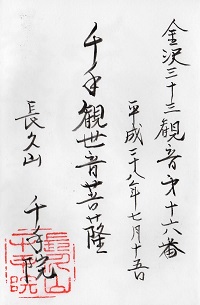 金沢三十三観音第十六番
平成二十八年七月十五日
千手観世音菩薩
長久山
千手院